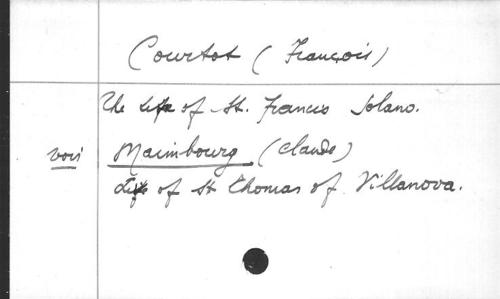 Courtot (François)
The Life of St. Francis Solano.
voir Maimbourg (Claude)
Life of St Thomas of Villanova.